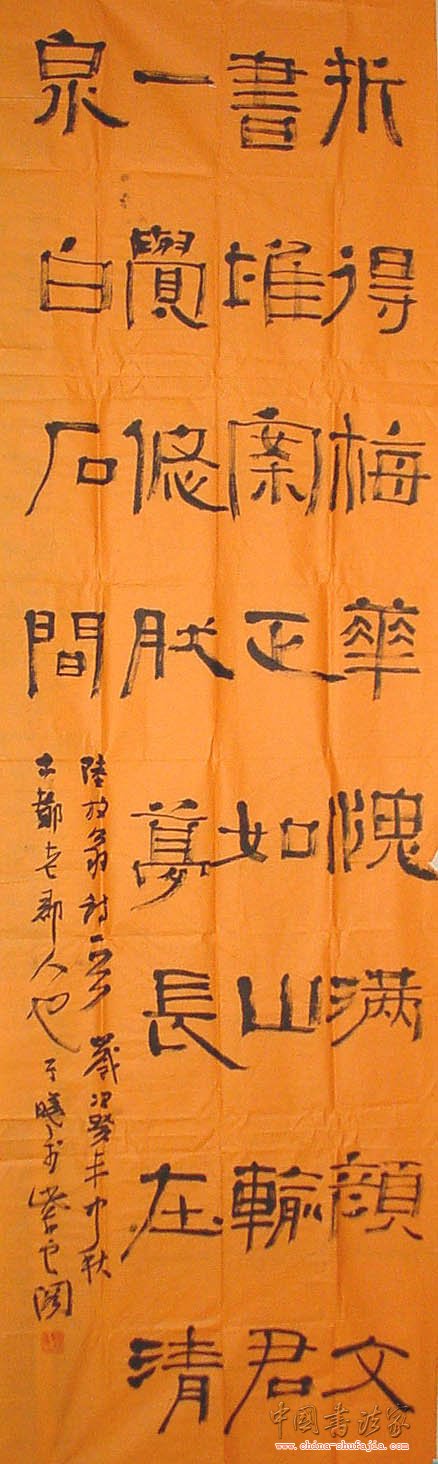 折得梅華愧滿顔文
書堆案正如山輸君
一覺悠然夢長在清
泉白石間
陸放翁詩一首 歲次癸未中秋
古都老 人也
中國書法家
www.china-shufajia.com